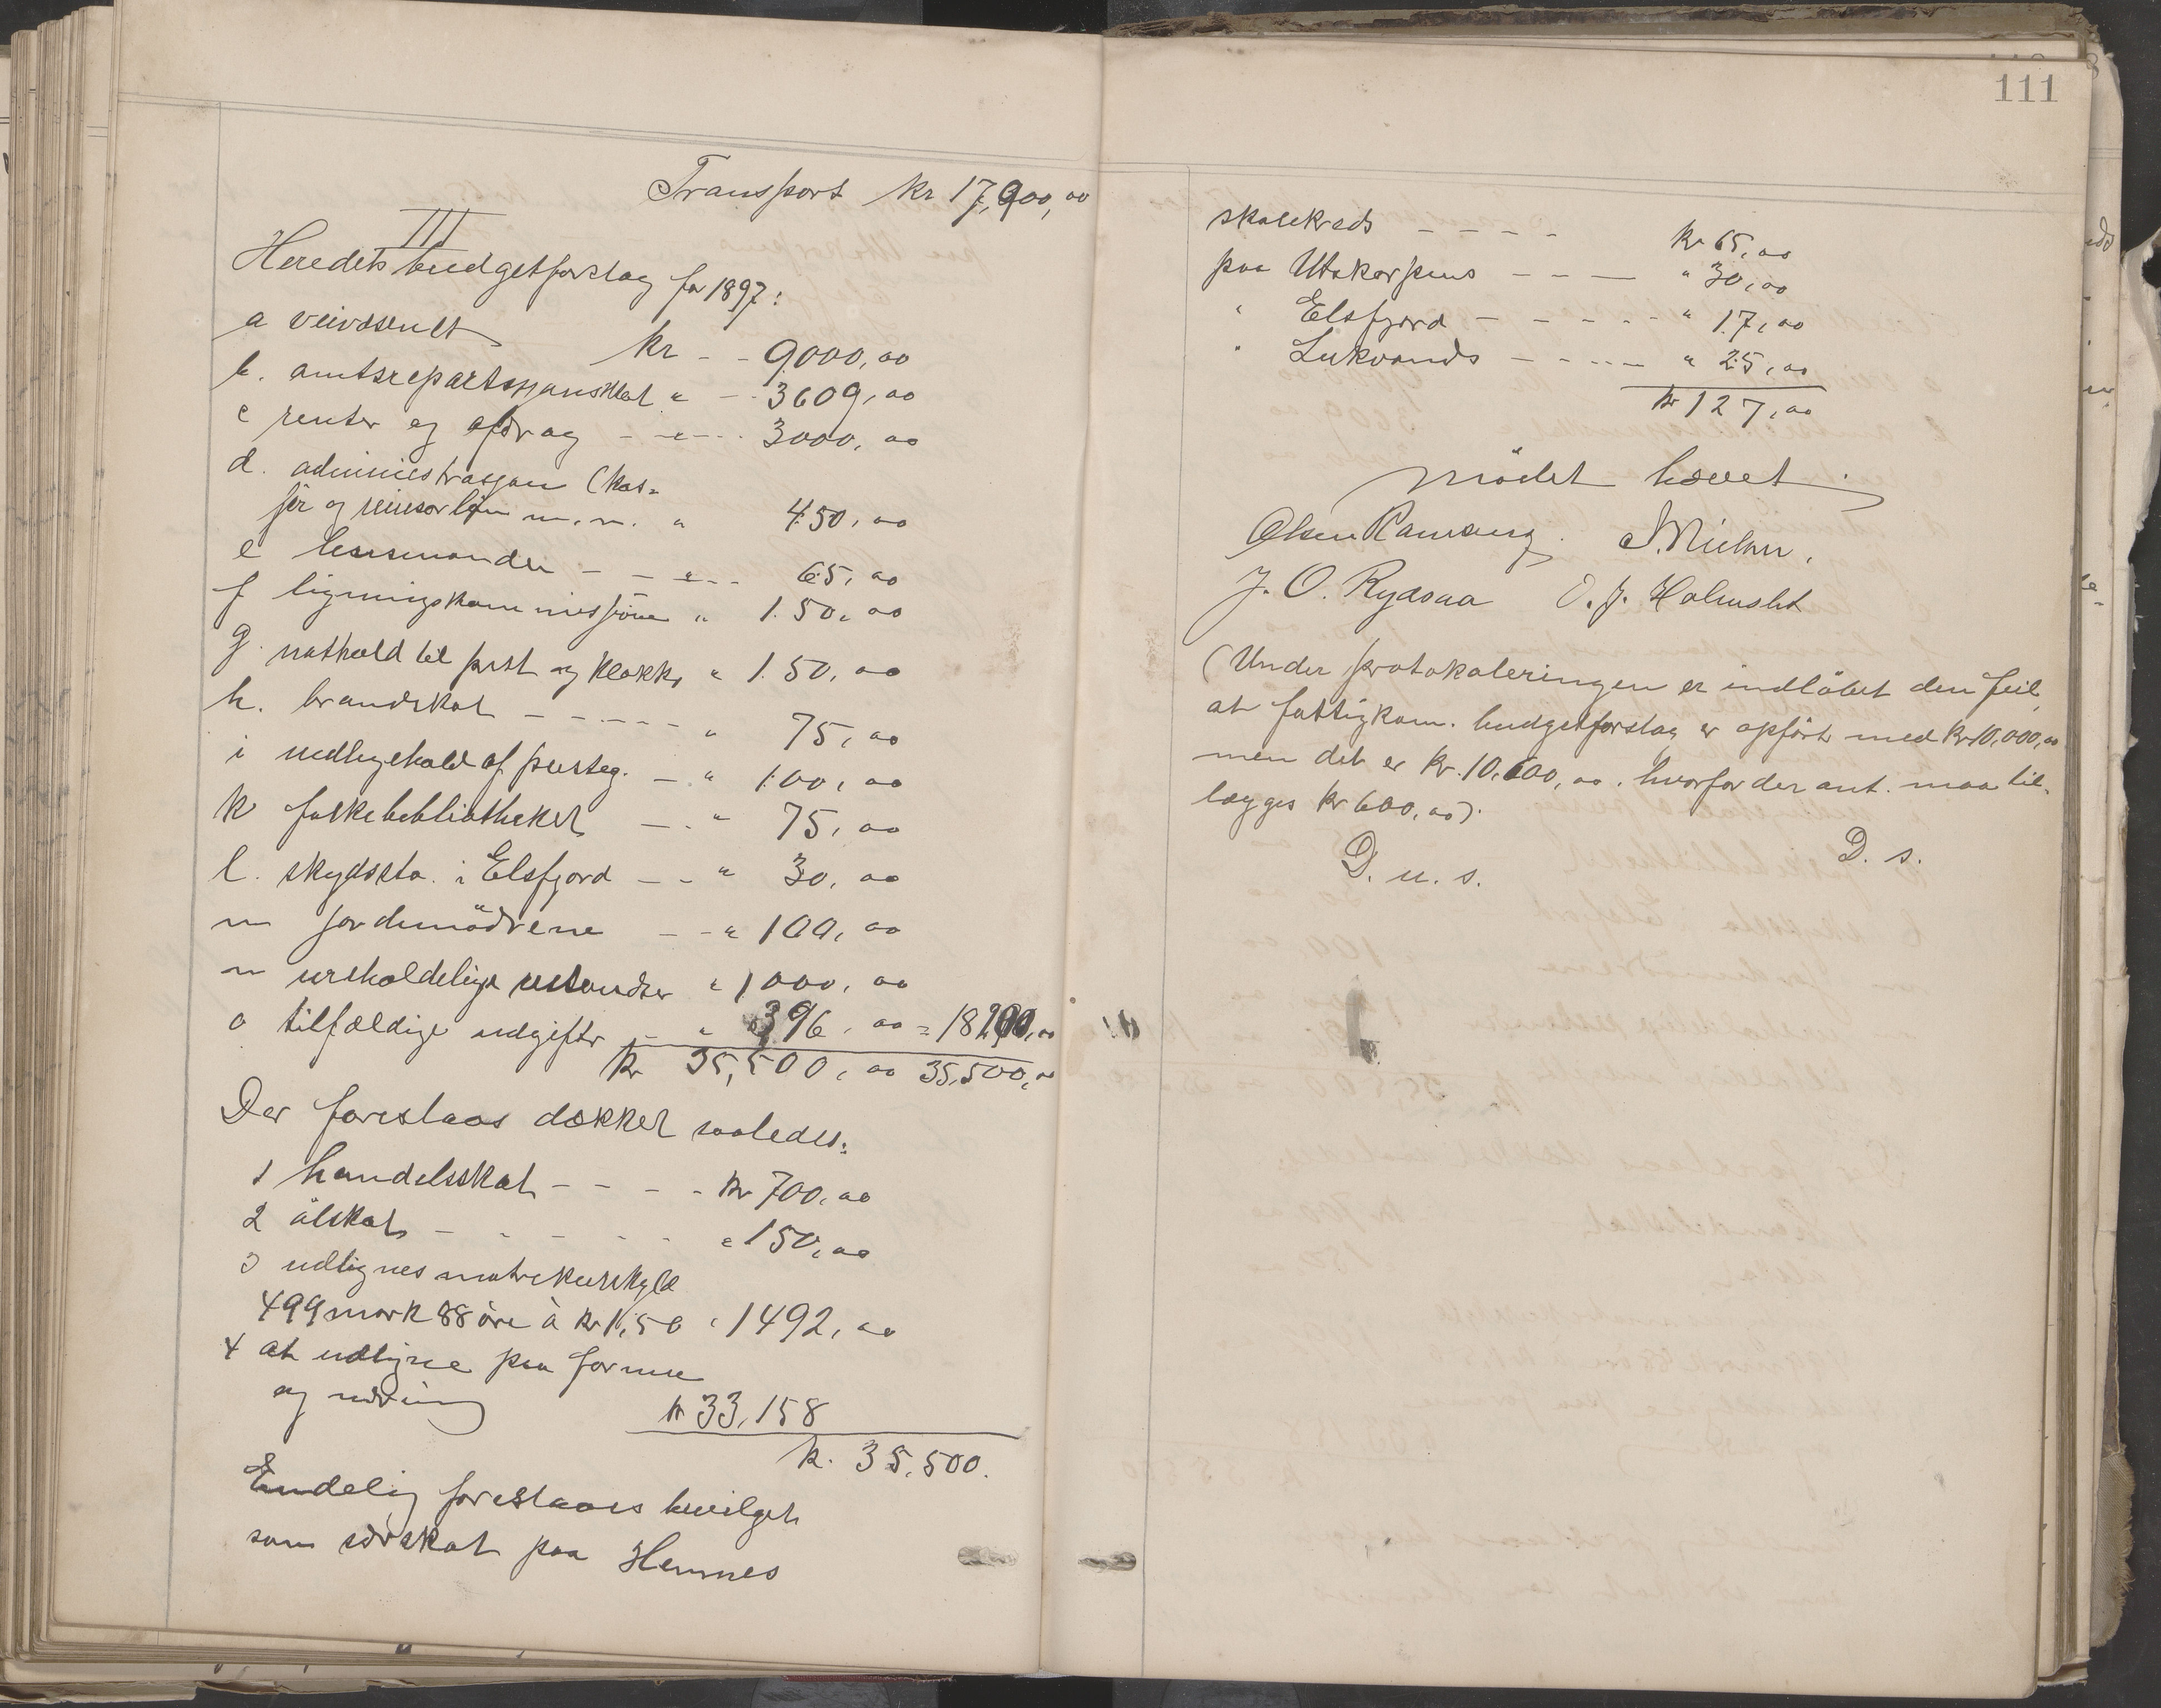 Transport kr 17,300,00
III
Heredets budgetforslag for 1897:
a veivæsenet kr - - 9000,00
b. amtsrepartisjonsskat " - - 3609,00
c renter og afdrag - - " - - 3000,00
d. administrasjon (kas=
ser og revisorløn m.m. " 450,00
e lensmanden - - " - - 65,00
f ligningskommissionen " 150,00
g. nathold til prest og klokker " 150,00
h. brandskat - - - - - " 75,00
i vedligehold af presteg. - " 100,00
k folkebibliotheket - - " 75,00
l. skydssta. i Elsfjord - - " 30,00
m jordmødrene - - " 100,00
n uerholdelige restandser " 1000,00
o tilfældige udgifter - " 396,00 = 18200,00
kr 35,500,00 35,500,00
Der foreslaaes dækket saaledes:
1 handelsskat - - - - kr 700,00
2 ølskat - - - - - " 150,00
3 udlignes matrikulskyld
499 mark 88 øre à kr 1,50 " 1492,00
4 at udligne paa formue
og næring kr 33,158
kr. 35,500.
Endelig foreslaaes bevilget
som særskat paa Hemnes
111
skolekreds - - - - kr 65,00
paa Utskarpens - - - " 30,00
" Elsfjord - - - - - " 17,00
" Lukvands - - - - " 25,00
kr 127,00
Mødet hævet.
Olsen Ranvang. S. Nielsen.
J. O. Rydsaa O. J. Holmslet
(Under protokoleringen er indløbet den feil,
at fattigkom. budgetforslag er opført med kr 10,000,00
men det er kr. 10,600,00, hvorfor der ant. maa til=
lægges kr 600,00).
D. s.
D. u. s.